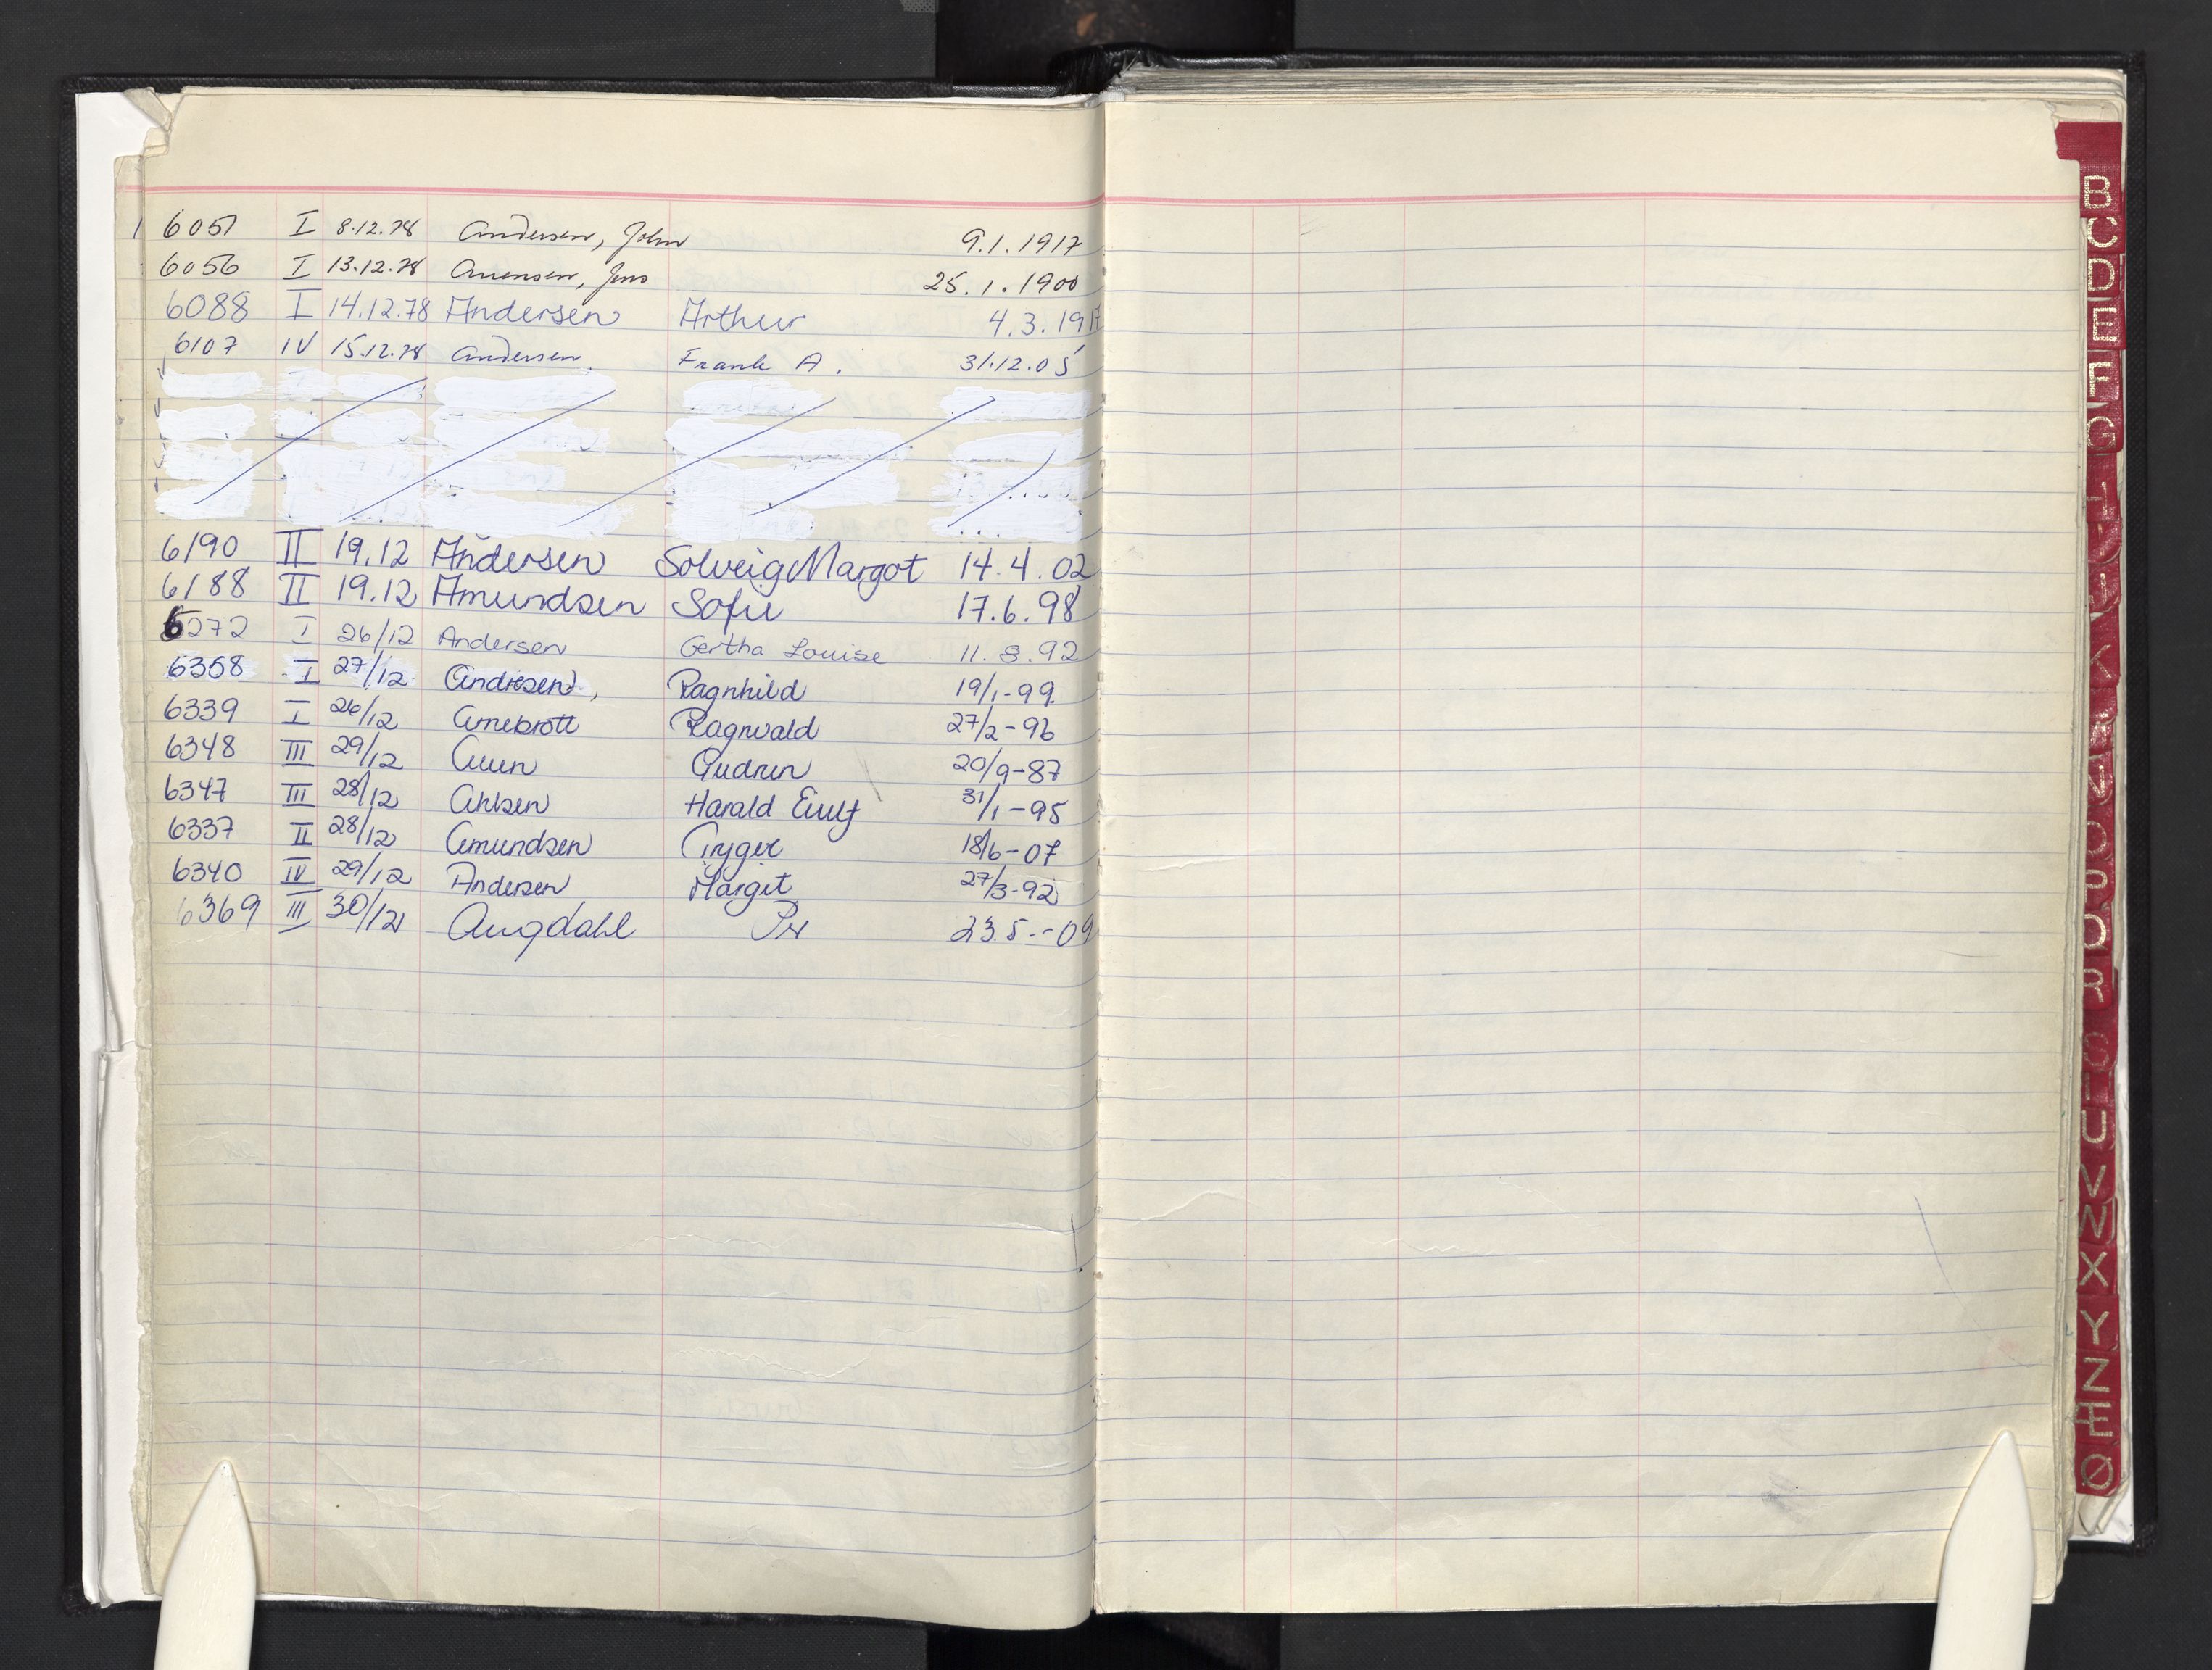 6051 I 8.12.78 Andersen, John 9.1.1917
6056 I 13.12.78 Arnensen, Jens 25.1.1900
6088 I 14.12.78 Andersen Arthur 4.3.1917
6107 IV 15.12.78 Andersen, Frank A. 31.12.05
6190 II 19.12 Andersen Solveig Margot 14.4.02
6188 II 19.12 Amundsen Sofie 17.6.98
6272 I 26/12 Andersen Gertha Louise 11.8.92
6358 I 27/12 Andresen, Ragnhild 19/1-99
6339 I 26/12 Arnebrott Ragnvald 27/2-96
6348 III 29/12 Gudrun 20/9-87
6347 III 28/12 Ahlsen Harald 31/1-95
6337 II 28/12 Amundsen 18/6-07
6340 IV 29/12 Andersen Margit 27/3-92
6369 III 30/12 Augdahl Per 23.5.-09
B
C
D
E
F
G
K
N
O
P
R
S
T
U
V
W
X
Y
Z
Æ
Ø